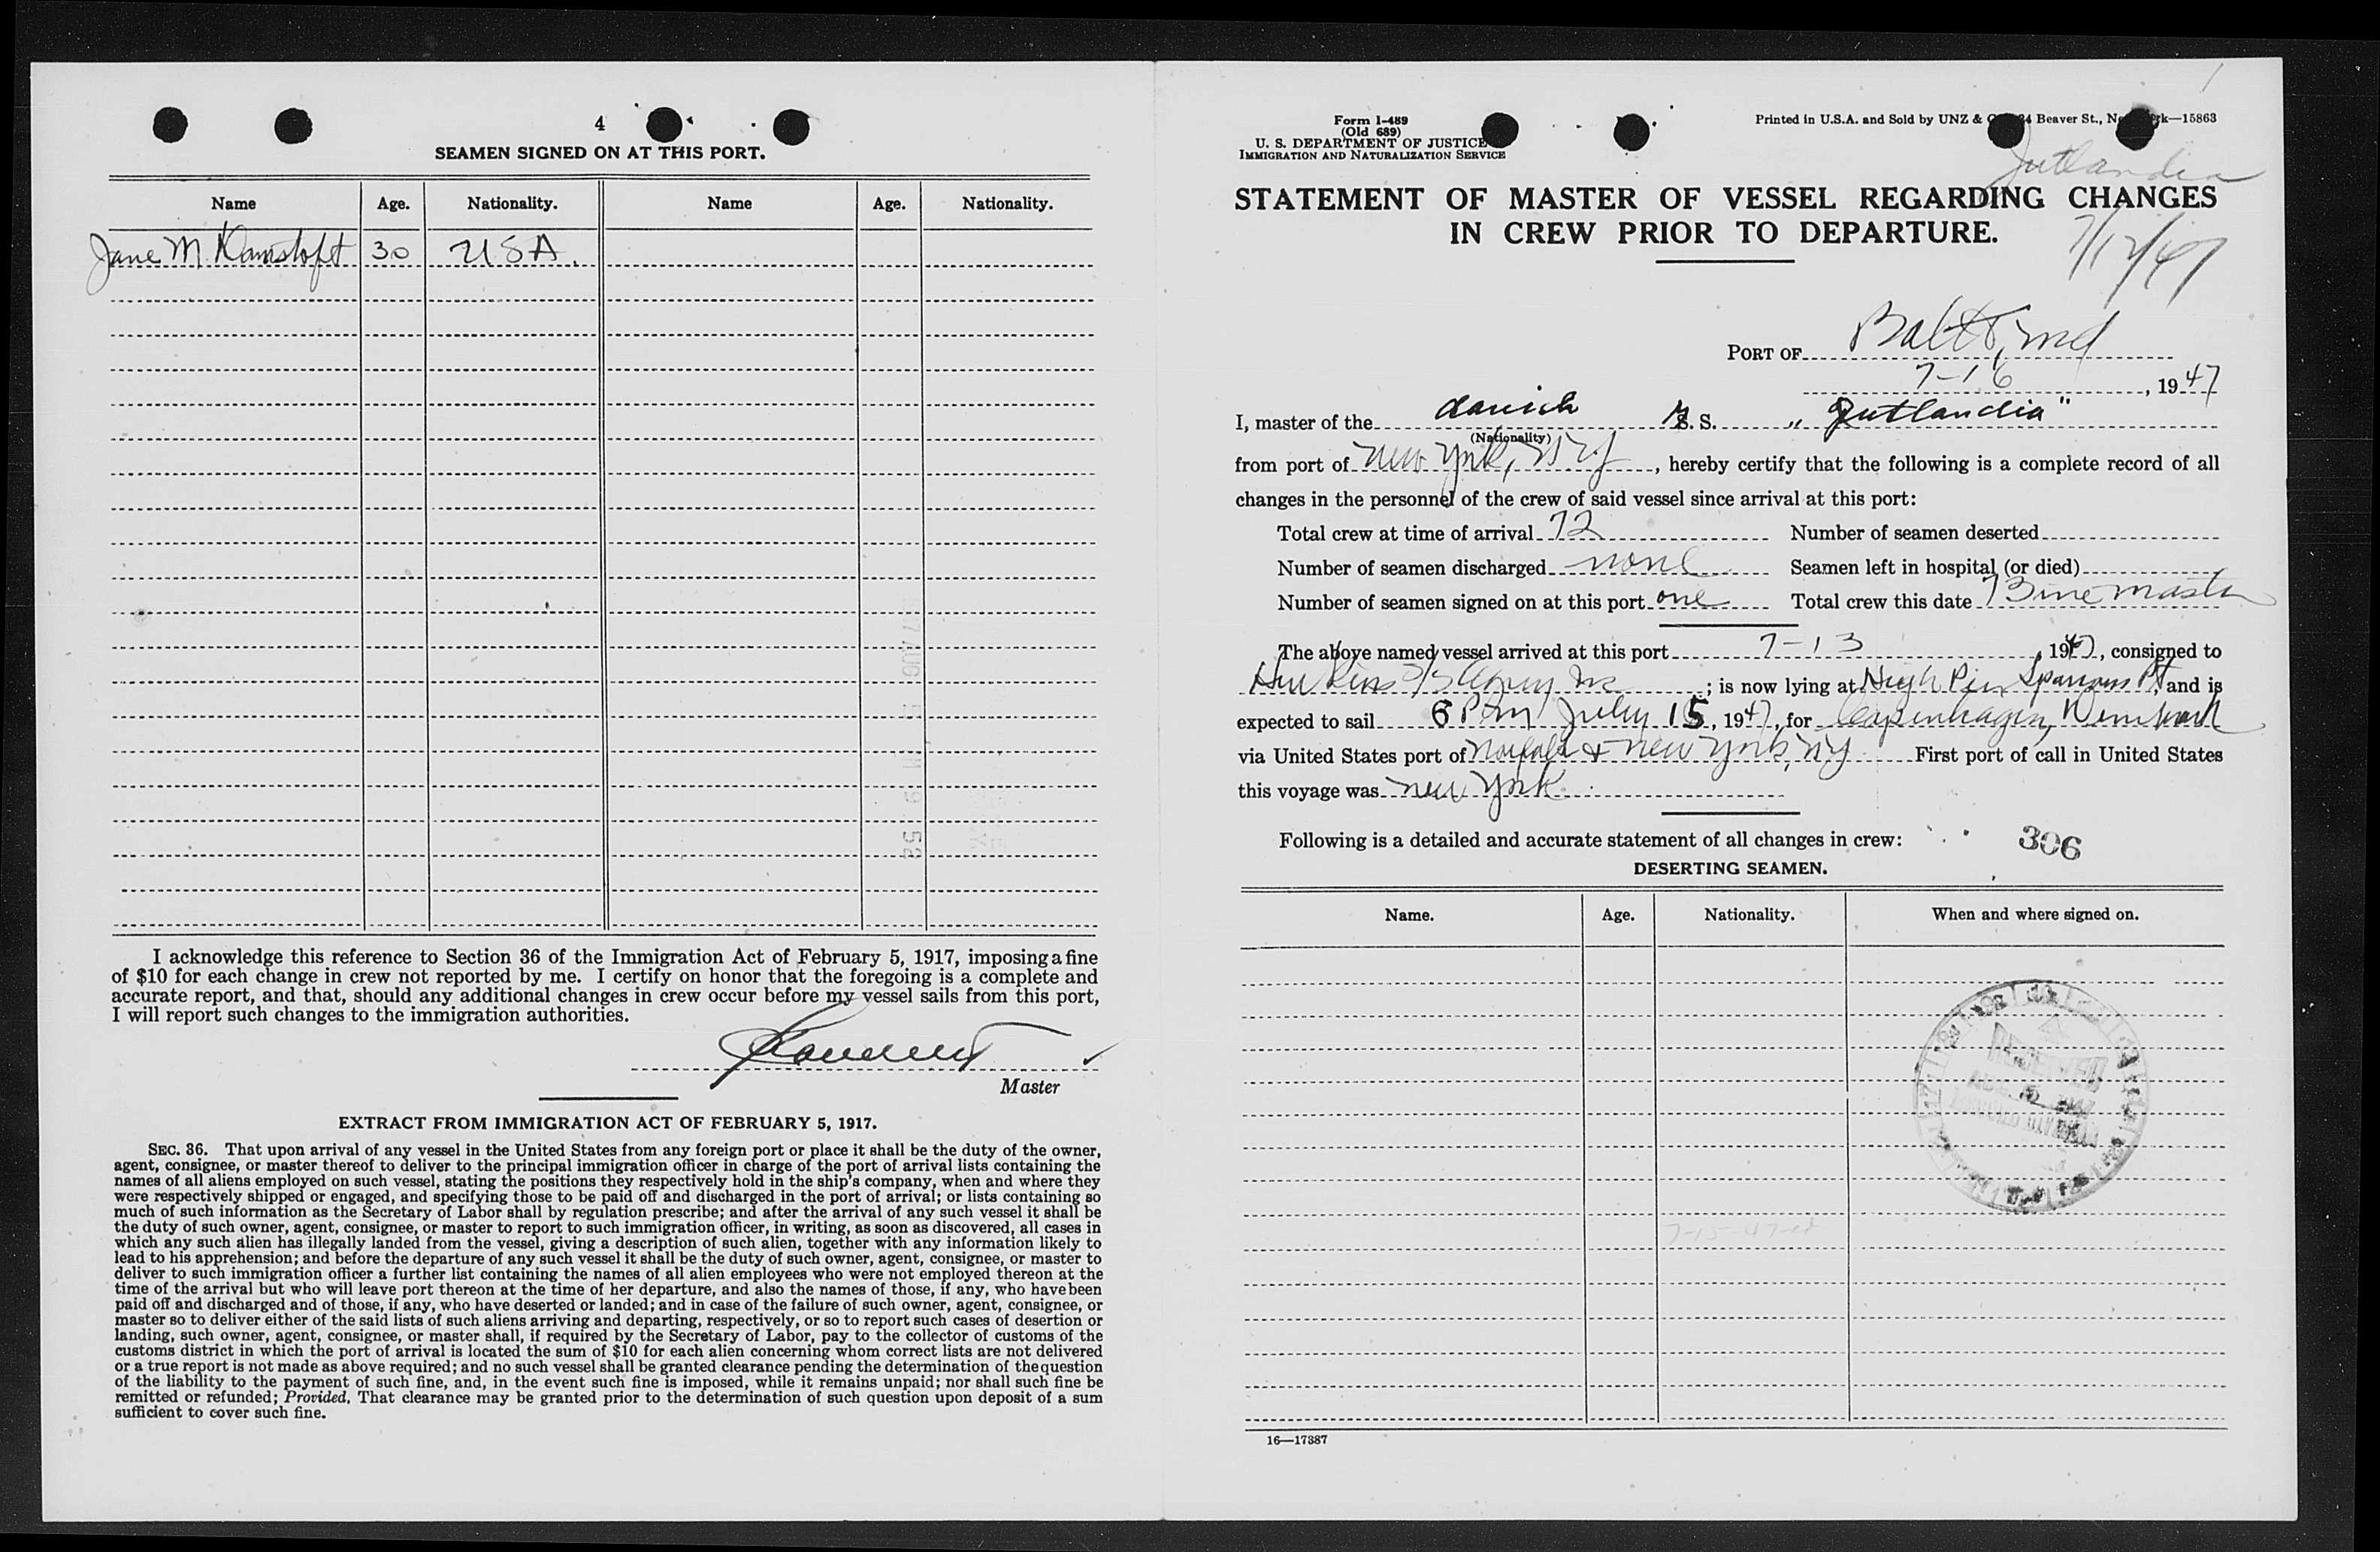 4
SEAMEN SIGNED ON AT THIS PORT.
Name Age. Nationality. Name Age. Nationality.
Jane M. 30 USA.
I acknowledge this reference to Section 36 of the Immigration Act of February 5, 1917, imposing a fine
of $10 for each change in crew not reported by me. I certify on honor that the foregoing is a complete and
accurate report, and that, should any additional changes in crew occur before my vessel sails from this port,
I will report such changes to the immigration authorities.
Master
EXTRACT FROM IMMIGRATION ACT OF FEBRUARY 5, 1917.
SEC. 36. That upon arrival of any vessel in the United States from any foreign port or place it shall be the duty of the owner,
agent, consignee, or master thereof to deliver to the principal immigration officer in charge of the port of arrival lists containing the
names of all aliens employed on such vessel, stating the positions they respectively hold in the ship's company, when and where they
were respectively shipped or engaged, and specifying those to be paid off and discharged in the port of arrival; or lists containing so
much of such information as the Secretary of Labor shall by regulation prescribe; and after the arrival of any such vessel it shall be
the duty of such owner, agent, consignee, or master to report to such immigration officer, in writing, as soon as discovered, all cases in
which any such alien has illegally landed from the vessel, giving a description of such alien, together with any information likely to
lead to his apprehension; and before the departure of any such vessel it shall be the duty of such owner, agent, consignee, or master to
deliver to such immigration officer a further list containing the names of all alien employees who were not employed thereon at the
time of the arrival but who will leave port thereon at the time of her departure, and also the names of those, if any, who have been
paid off and discharged and of those, if any, who have deserted or landed; and in case of the failure of such owner, agent, consignee, or
master so to deliver either of the said lists of such aliens arriving and departing, respectively, or so to report such cases of desertion or
landing, such owner, agent, consignee, or master shall, if required by the Secretary of Labor, pay to the collector of customs of the
customs district in which the port of arrival is located the sum of $10 for each alien concerning whom correct lists are not delivered
or a true report is not made as above required; and no such vessel shall be granted clearance pending the determination of the question
of the liability to the payment of such fine, and, in the event such fine is imposed, while it remains unpaid; nor shall such fine be
remitted or refunded; Provided, That clearance may be granted prior to the determination of such question upon deposit of a sum
sufficient to cover such fine.
Form I-489
(Old 689)
U. S. DEPARTMENT OF JUSTICE
IMMIGRATION AND NATURALIZATION SERVICE
Printed in U.S.A. and Sold by UNZ & Beaver St., —15863
Jutlandia
STATEMENT OF MASTER OF VESSEL REGARDING CHANGES
IN CREW PRIOR TO DEPARTURE.
7/17/47
PORT OF Balto, md
7-16, 1947
I, master of the danish M. S. "Jutlandia"
(Nationality)
from port of New York, NY, hereby certify that the following is a complete record of all
changes in the personnel of the crew of said vessel since arrival at this port:
Total crew at time of arrival 72 Number of seamen deserted
Number of seamen discharged none Seamen left in hospital (or died)
Number of seamen signed on at this port one Total crew this date 73 inc master
The above named vessel arrived at this port 7-13, 1947, consigned to
; is now lying at High Pier Sparrows Pt and is
expected to sail 6 P.m July 15, 1947, for Copenhagen, Denmark
via United States port of Norfolk & New York, NY First port of call in United States
this voyage was New York
Following is a detailed and accurate statement of all changes in crew: 306
DESERTING SEAMEN.
Name. Age. Nationality. When and where signed on.
RECEIVED
7-15-47
16—17387